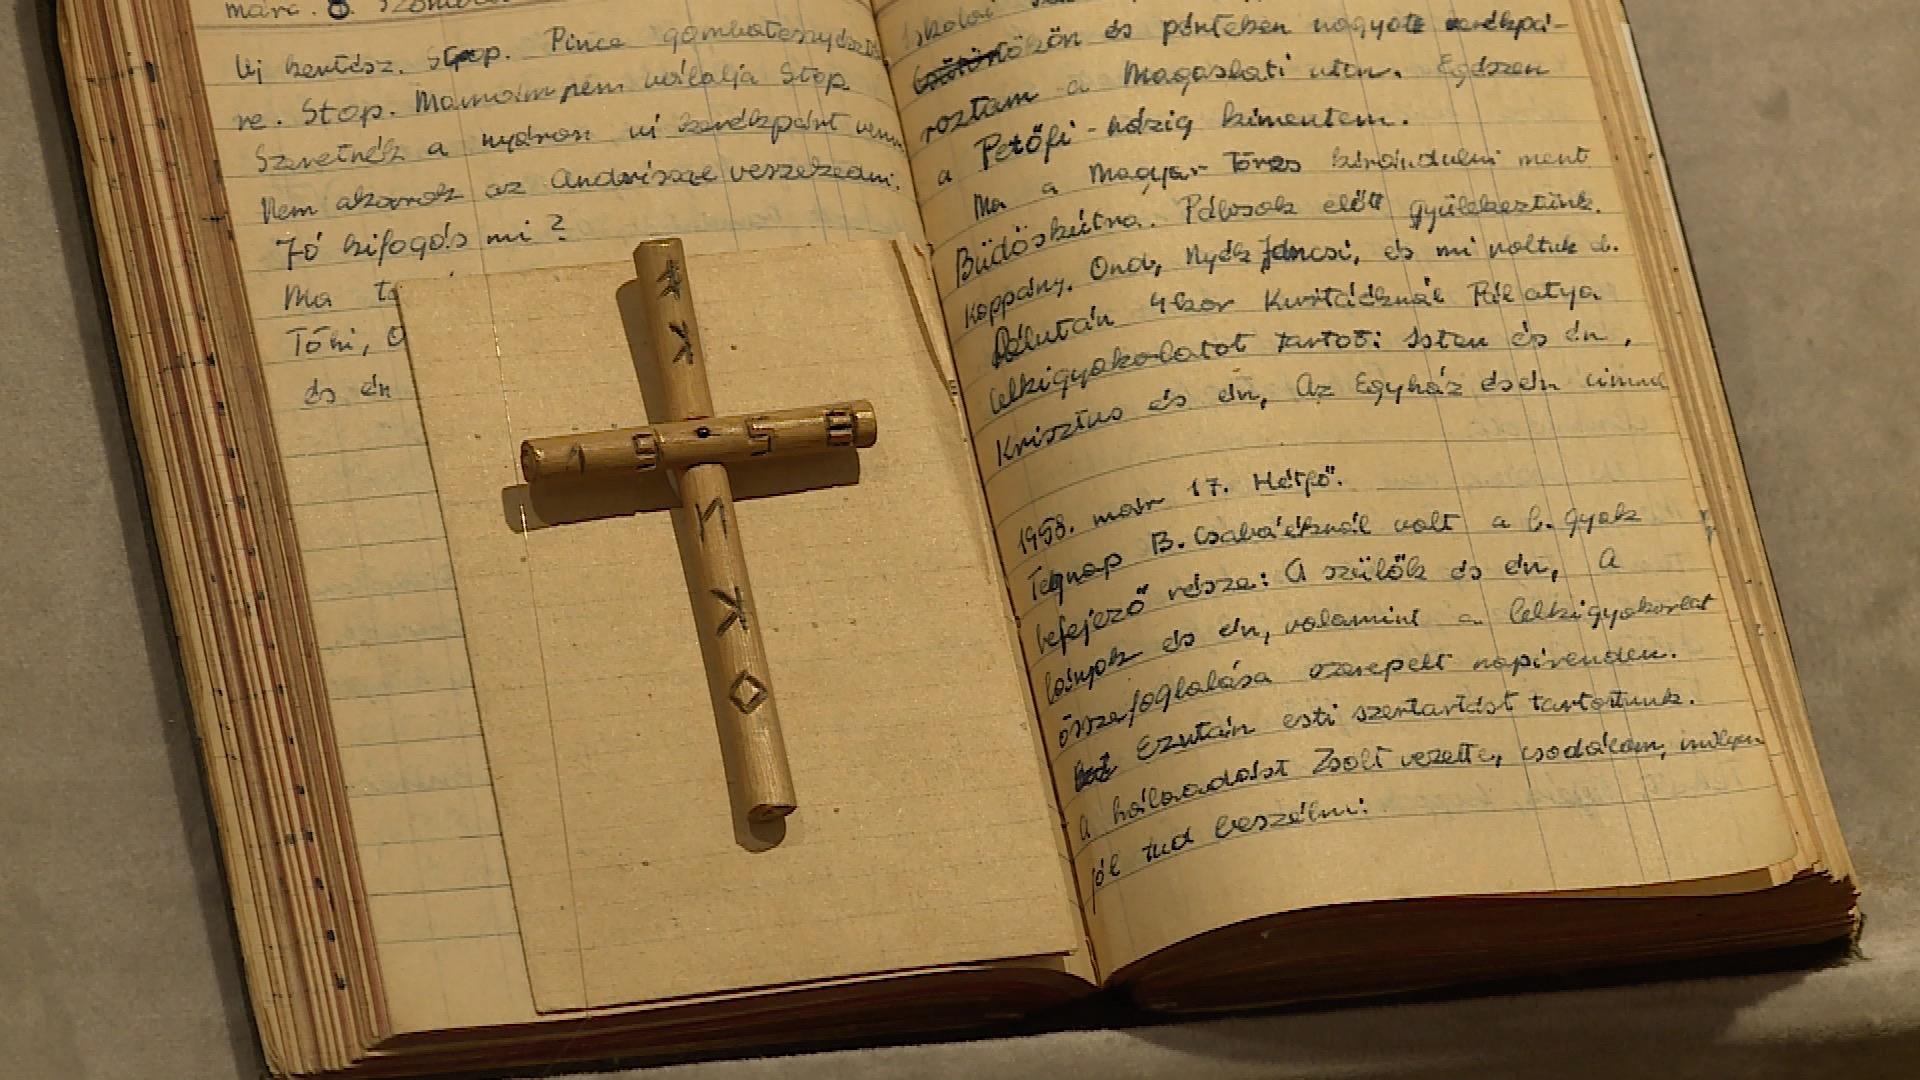 márc. 8. Szombat
Új kertész. Stop. Pince gombatenyészet
re. Stop. Mamám nem vállalja Stop
Szeretnék a nyáron új kerékpárt venni
Nem akarok az Andrissal veszekedni.
Jó kifogás mi?
Ma
Tóni,
és én
Iskolai
ötökön és pénteken nagyot kerékpá-
roztam a Magaslati uton. Egészen
a Petőfi-házig kimentem.
Ma a Magyar Törzs kirándulni ment
Büdöskútra. Pálosok előtt gyülekeztünk.
Koppány, Ond, Nyék Jancsi, és mi voltunk o.
Délután 4kor Kurtáéknál Pál atya
lelkigyakorlatot tartott: Isten és én,
Krisztus és én, Az Egyház és én címmel
1958. már 17. Hétfő.
Tegnap B. Csabáéknál volt a l. gyak
befejező része: A szülők és én, A
lányok és én, valamint a lelkigyakorlat
összefoglalása szerepelt napirenden.
Ezután esti szertartást tartottunk.
A hálaadást Zsolt vezette, csodálom, milyen
jól tud beszélni: